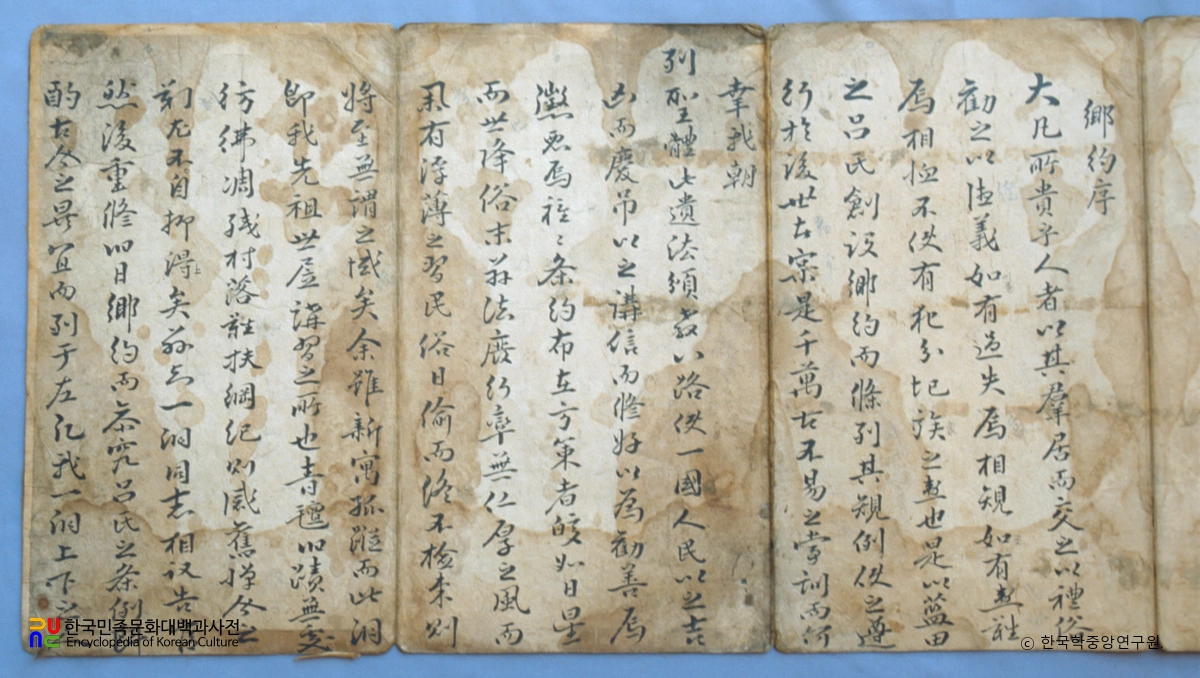 鄕約序
大凡所貴乎人者以其羣居而交之以禮俗
勸之以德義如有過失焉相規如有患難
焉相恤不使有犯分圮族之患也是以藍田
之呂民創設鄕約而條列其規例使之遵
行於後世古宗是千萬古不易之常訓而何
幸我朝
列聖體此遺法頒敎八路使一國人民以之吉
凶而慶吊以之講信而修好以爲勸善焉
懲惡焉種種条約布在方策者皎如日星
而世降俗末並法廢行率無仁厚之風而
风有浮薄之習民俗日偷而終不檢束則
將至無謂之域矣余雖新寓孤蹤而此洞
卽我先祖世居講習之所也青氊旧蹟無變
彷彿凋殘村落難扶綱紀則感舊憚今之
尤不自抑得矣 與一洞同志相议告
然後重修旧日鄕約而参究呂氏之条例
酌古今之異宜而列于左凡我一洞上下之
한국민족문화대백과사전
Encyclopedia of Korean Culture
ⓒ 한국학중앙연구원